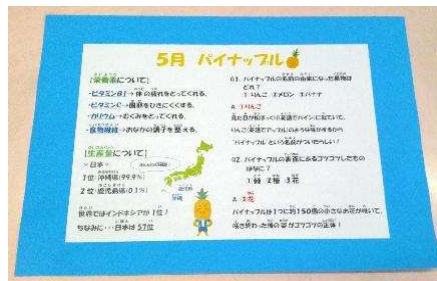 5月 パイナップル
[栄養素について]
・ビタミンB1→体の疲れをとってくれる。
・ビタミンC→風邪をひきにくくする。
・カリウム→むくみをとってくれる。
・食物繊維→おなかの調子を整える。
[生産量について]
＝日本＝
1位：沖縄県(99.9%)
2位：鹿児島県(0.1%)
世界ではインドネシアが1位！
ちなみに…日本は57位
Q1. パイナップルの名前の由来になった果物は
どれ？
1りんご 2メロン 3バナナ
A. 1りんご
見た目が松ぼっくり(英語でパイン)に似ていて、
りんご(英語でアップル)のような味がするから
パイナップル という名前がついたらしい！
Q2. パイナップルの表面にあるゴツゴツしたもの
はなに？
2種 3花
A. 3花
パイナップルは1つに約150個の小さなお花が咲いて、
咲き終わった後の姿がゴツゴツの正体！